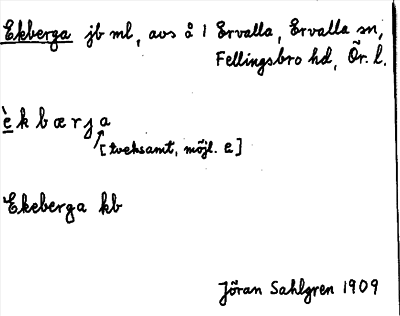 Ekberga jb ml, avs å 1 Ervalla, Ervalla sn,
Fellingsbro hd, Ör. l.
è k b œ r ȷ a
[tveksamt, möjl. e]
Ekeberga kb
Jöran Sahlgren 1909